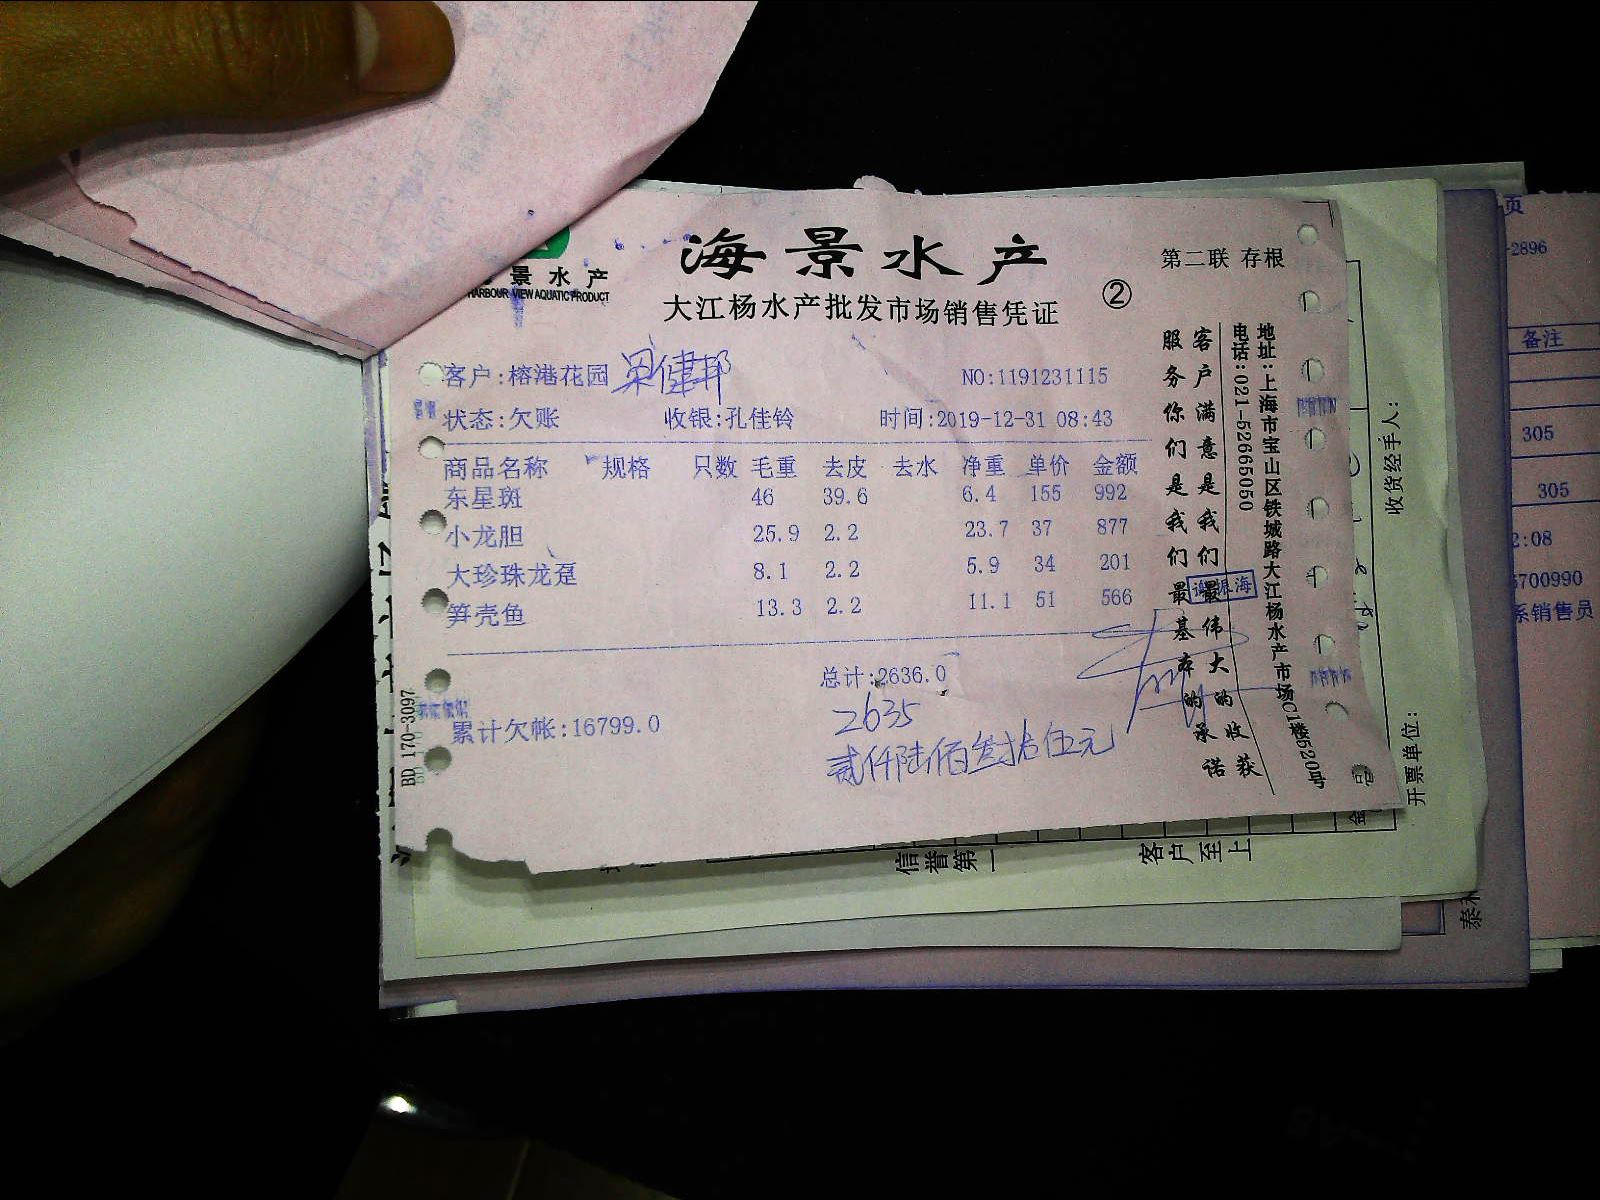 景水产
HARBOUR VIEW AQUATIC PRODUCT
海景水产
大江杨水产批发市场销售凭证
②
第二联 存根
客户:榕港花园 梁健邦
NO:1191231115
状态:欠账 收银:孔佳铃 时间:2019-12-31 08:43
商品名称 规格 只数 毛重 去皮 去水 净重 单价 金额
东星斑 46 39.6 6.4 155 992
小龙胆 25.9 2.2 23.7 37 877
大珍珠龙趸 8.1 2.2 5.9 34 201
笋壳鱼 13.3 2.2 11.1 51 566
总计:2636.0
2635
累计欠帐:16799.0
贰仟陆佰叁拾伍元
BD 170-3097
客户满意是我们最伟大的收获
服务你们是我们最基本的承诺
地址:上海市宝山区铁城路大江杨水产市场C1楼520号
电话:021-52665050
收货经手人:
开票单位:
信誉第一
客户至上
页
-2896
备注
305
305
2:08
5700990
系销售员